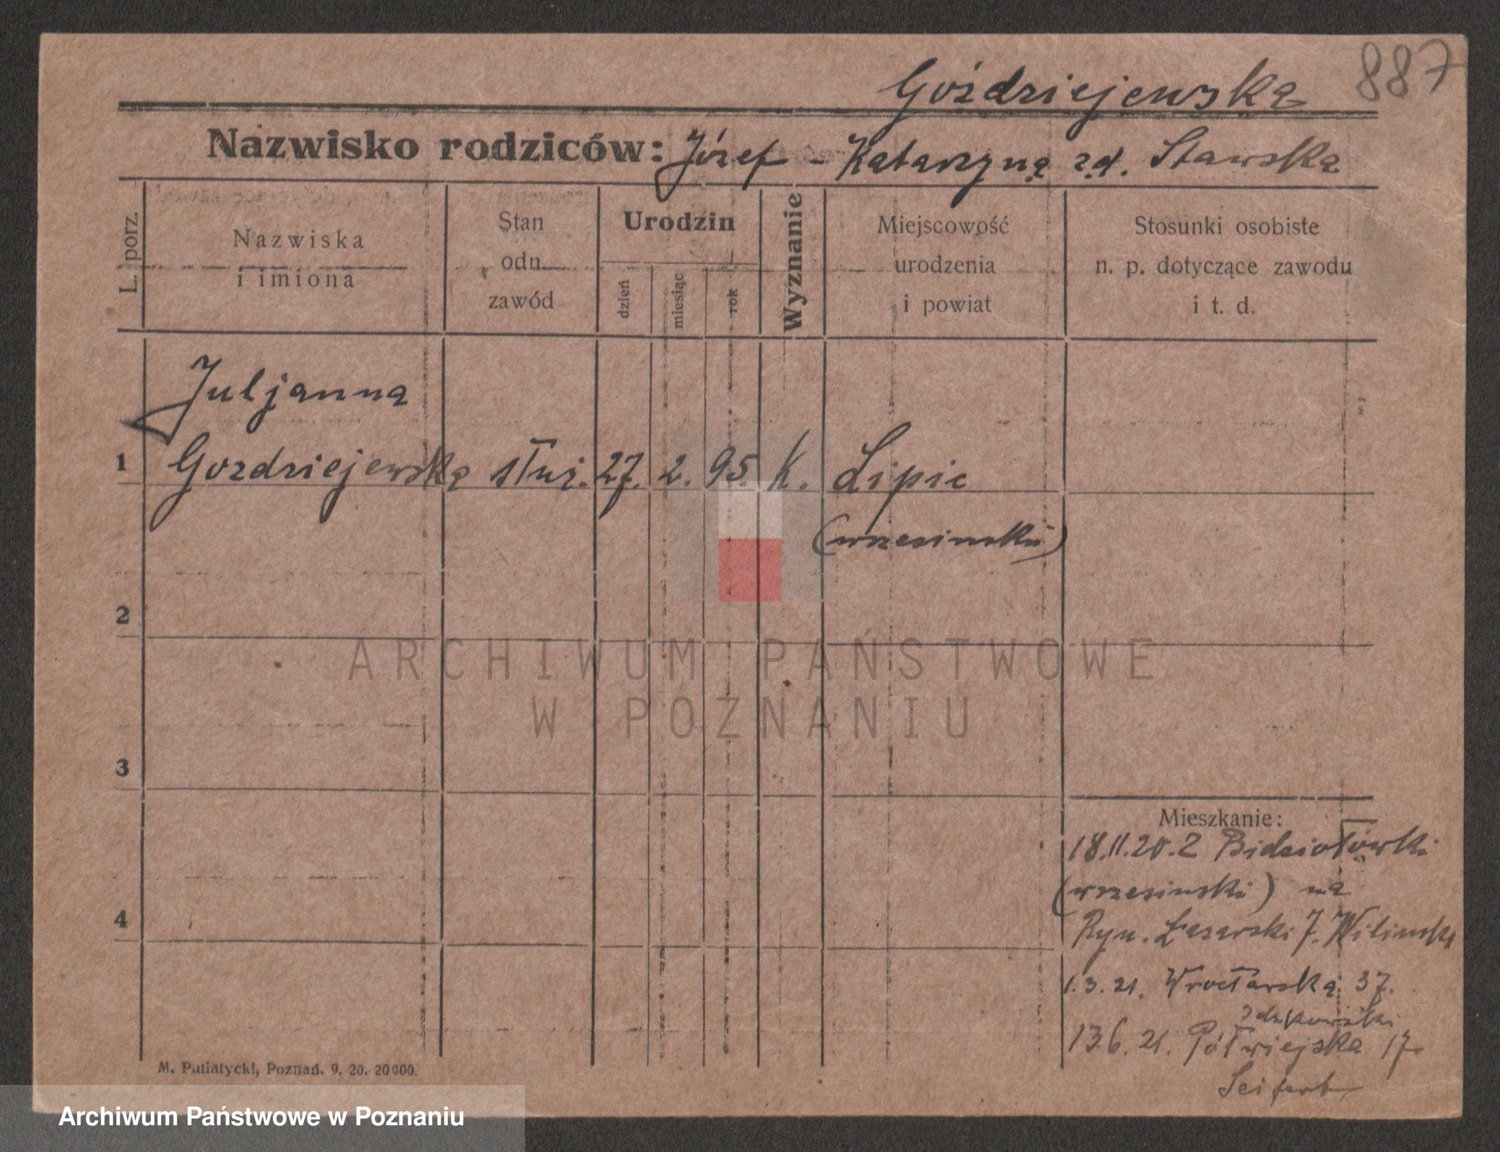 887
Goździejewska
Nazwisko rodziców: Józef - Katarzyna z.d. Stawska
L. porz.
Nazwiska
i imiona
Stan
odn.
zawód
Urodzin
dzień
miesiąc
rok
Wyznanie
Miejscowość
urodzenia
i powiat
Stosunki osobiste
n. p. dotyczące zawodu
i t. d.
Juljanna
1 Gozdziejewska służ. 27. 2. 95. K. Lipie
(wrzesinski)
2
ARCHIWUM PAŃSTWOWE
W POZNANIU
3
Mieszkanie:
18.11.20. Z
(wrzesinski) na
4
Ryn. Łazarski 7.
1.3.21. Wrocławska 37.
13.6.21. Półwiejska 17
Seifert
M. Putiatycki, Poznań. 9. 20. 20000.
Archiwum Państwowe w Poznaniu